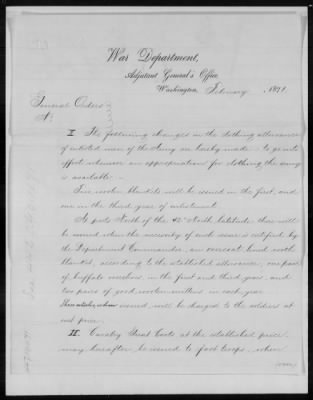 War Department,
Adjutant General's Office,
Washington, February , 1871.
General Orders
No.
I. The following changes in the clothing allowance
of enlisted men of the Army are hereby made - to go into
effect whenever an appropriation for clothing the army
is available -
Two woolen blankets will be issued in the first, and
one in the third year of enlistment.
At posts North of the 42° North latitude, there will be
issued when the necessity of such issue is certified by
the Department Commander, an overcoat lined with
blanket, according to the established allowance, one pair
of buffalo overshoes, in the first and third year, and
two pairs of good woolen mittens in each year.
These articles, when issued, will be charged to the soldiers at
cost price.
II. Cavalry Great Coats at the established price
may hereafter be issued to foot troops, when